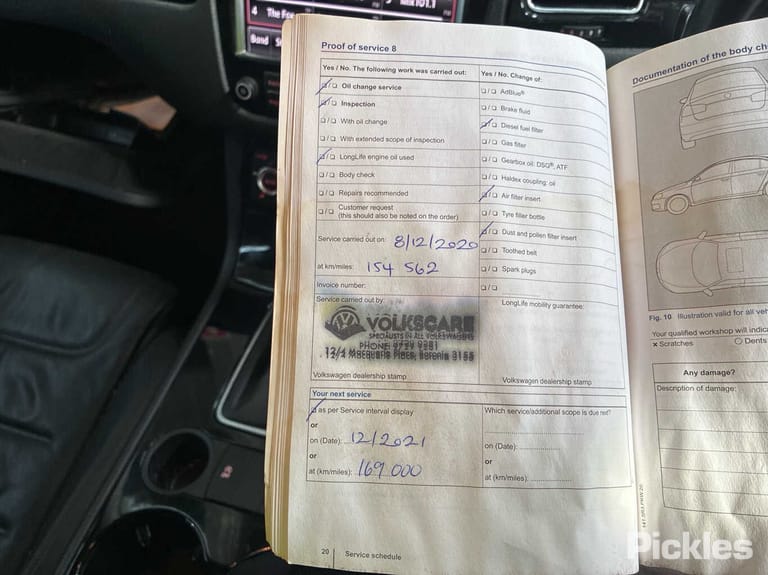 4 The Fo
Mix 101.1
Band
Proof of service 8
Yes / No. The following work was carried out:
❑/❑ Oil change service
❑/❑ Inspection
❑/❑ With oil change
❑/❑ With extended scope of inspection
❑/❑ LongLife engine oil used
❑/❑ Body check
❑/❑ Repairs recommended
❑/❑ Customer request
(this should also be noted on the order)
Service carried out on: 8/12/2020
at km/miles: 154 562
Invoice number:
Service carried out by:
VOLKSCARE
SPECIALISTS IN ALL VOLKSWAGENS
PHONE
Macquarie Place, Boronia 3155
Volkswagen dealership stamp
Yes / No. Change of:
❑/❑ AdBlue®
❑/❑ Brake fluid
❑/❑ Diesel fuel filter
❑/❑ Gas filter
❑/❑ Gearbox oil: DSG®, ATF
❑/❑ Haldex coupling: oil
❑/❑ Air filter insert
❑/❑ Tyre filler bottle
❑/❑ Dust and pollen filter insert
❑/❑ Toothed belt
❑/❑ Spark plugs
❑/❑
LongLife mobility guarantee:
Volkswagen dealership stamp
Your next service
❑ as per Service interval display
or
on (Date): 12/2021
or
at (km/miles): 169 000
Which service/additional scope is due next?
on (Date):
or
at (km/miles):
20 Service schedule
Documentation of the body ch
Fig. 10 Illustration valid for all veh
Your qualified workshop will indica
× Scratches ○ Dents
Any damage?
Description of damage:
Pickles